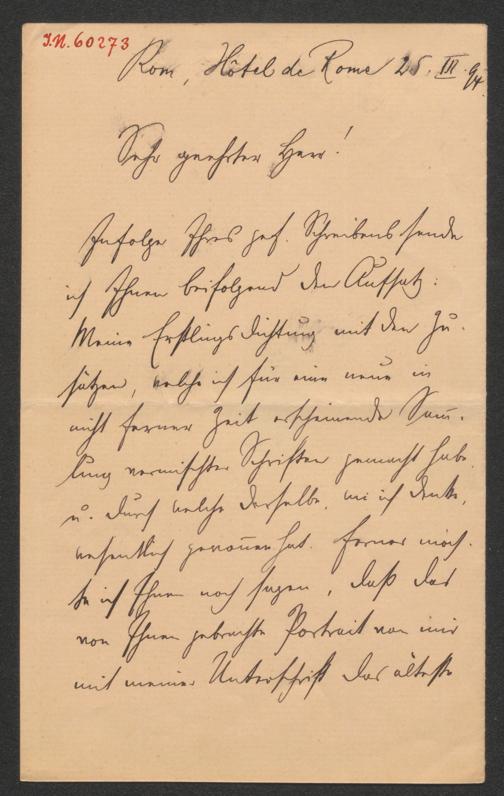 I.N. 60273
Rom, Hôtel de Rome 25. III. 94.
Sehr geehrter Herr!
Infolge Ihres gef. Schreibens sende
ich Ihnen beifolgend den Aufsatz:
Meine Erstlingsdichtung mit den Zu-
sätzen, welche ich für eine neue in
nicht ferner Zeit erscheinende Sam̄-
lung vermischter Schriften gemacht habe
u. durch welche derselbe, wie ich denke,
wesentlich gewonnen hat. Ferner möch-
te ich Ihnen noch sagen, daß das
von Ihnen gebrachte Portrait von mir
mit meiner Unterschrift das älteste